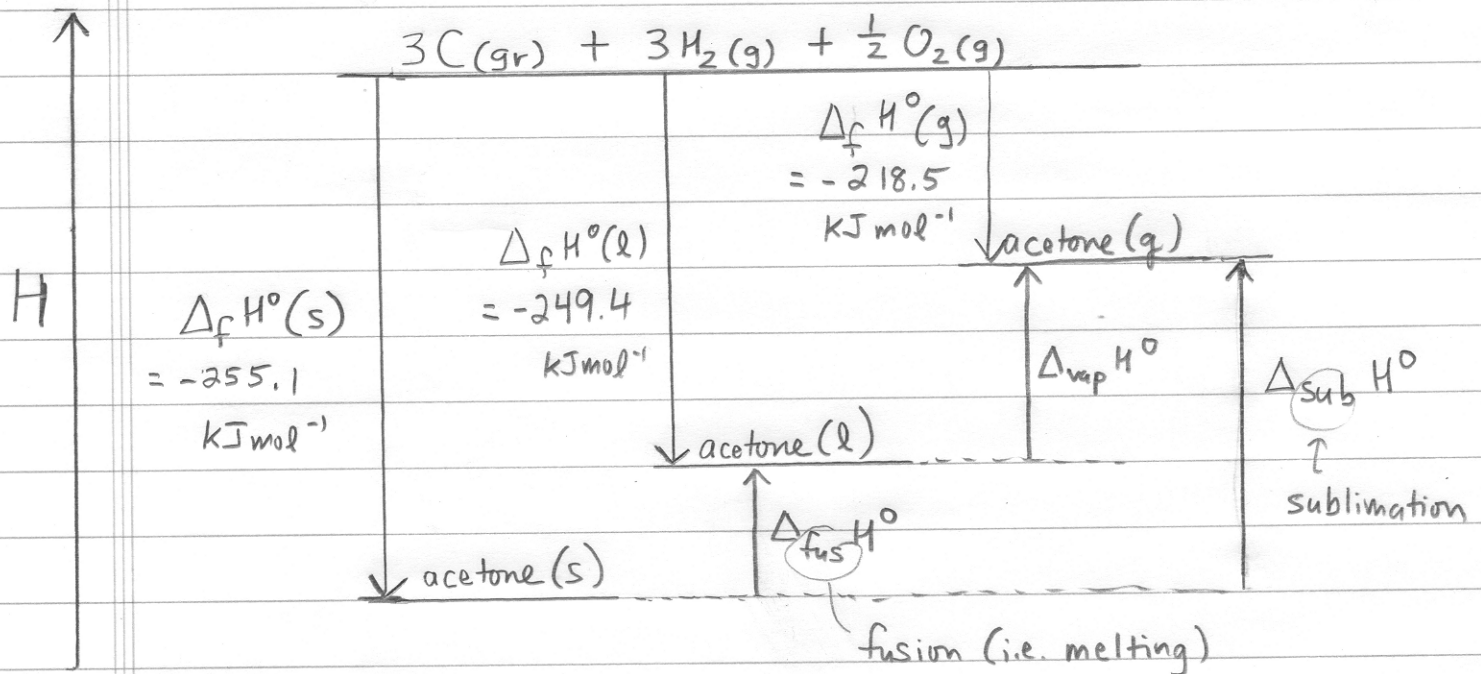 3C(gr) + 3H₂(g) + ½ O₂(g)
H
ΔfH°(s)
= -255.1
kJmol⁻¹
ΔfH°(l)
= -249.4
kJmol⁻¹
ΔfH°(g)
= -218.5
kJmol⁻¹
acetone(g)
ΔvapH°
ΔsubH°
sublimation
acetone(l)
ΔfusH°
acetone(s)
fusion (i.e. melting)